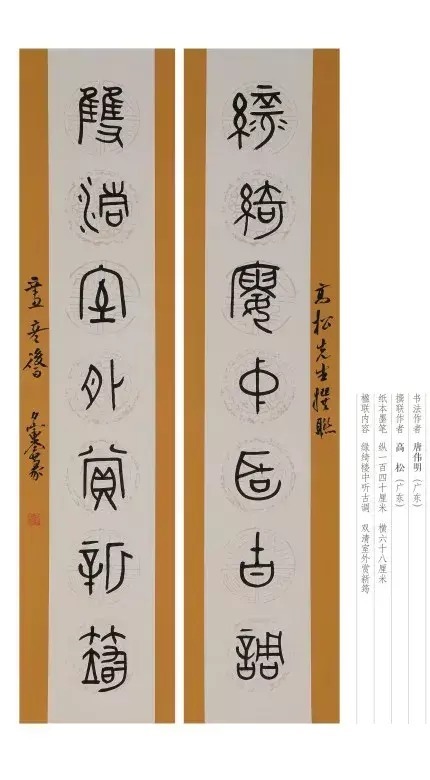 高松先生撰聯
綠綺樓中聽古調
雙清室外賞新筠
书法作者 唐伟明（广东）
撰联作者 高 松（广东）
纸本墨笔 纵一百四十厘米 横六十八厘米
楹联内容 绿绮楼中听古调 双清室外赏新筠